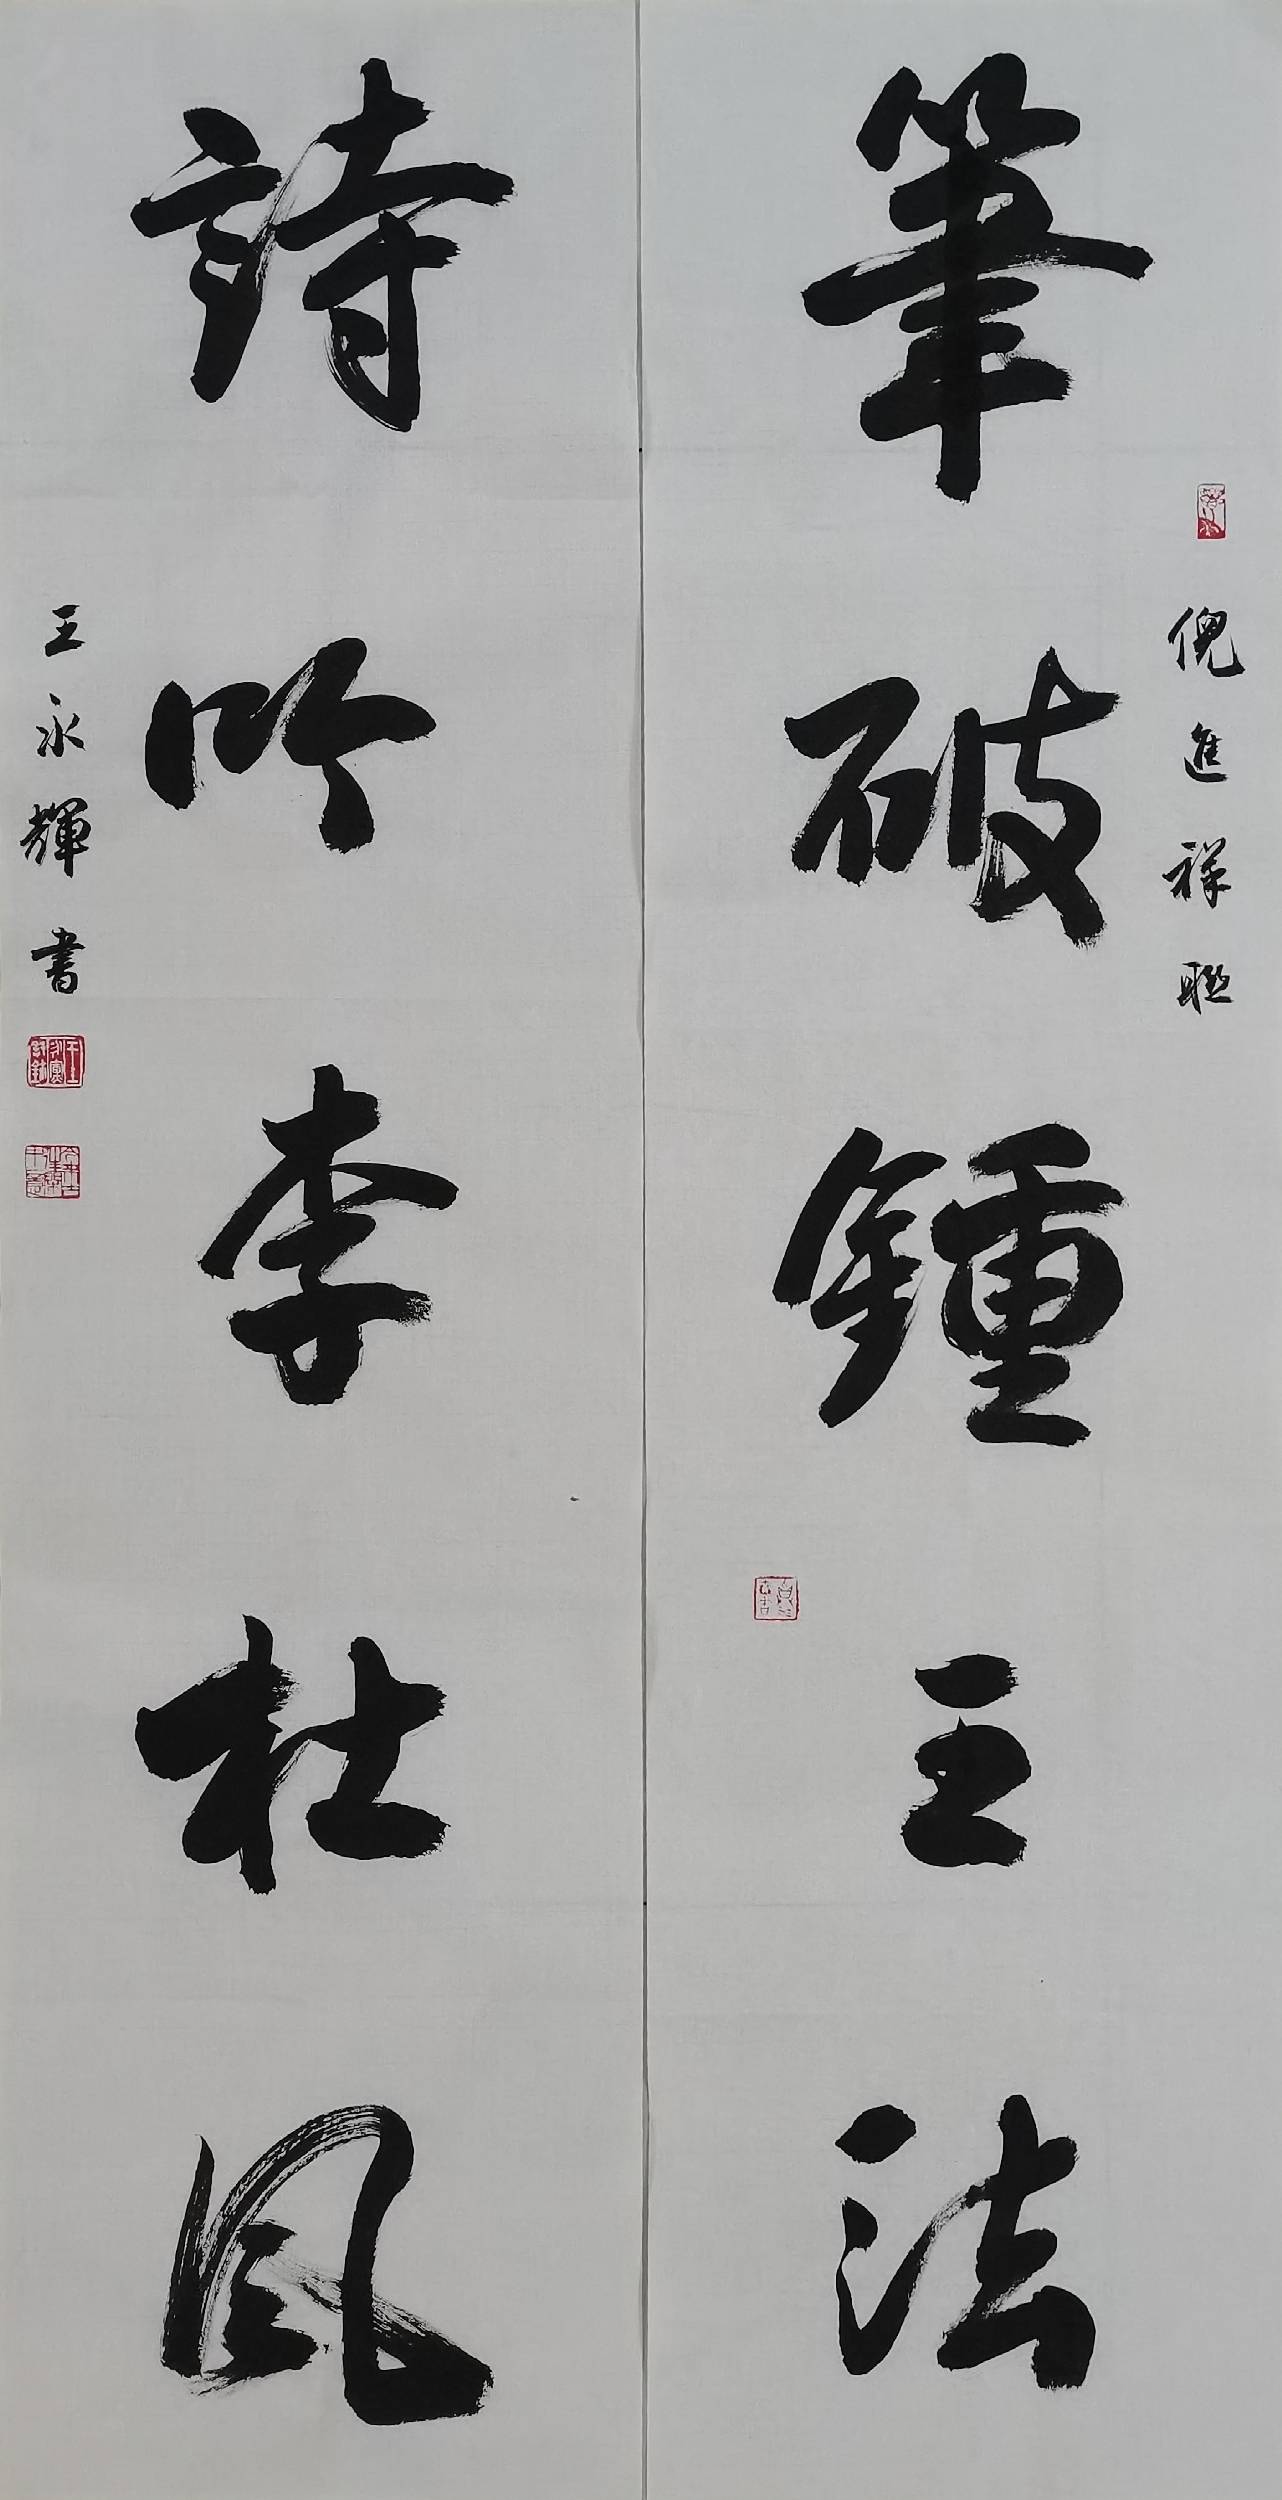 筆破鍾王法
倪進祥聯
詩吟李杜風
王永輝書